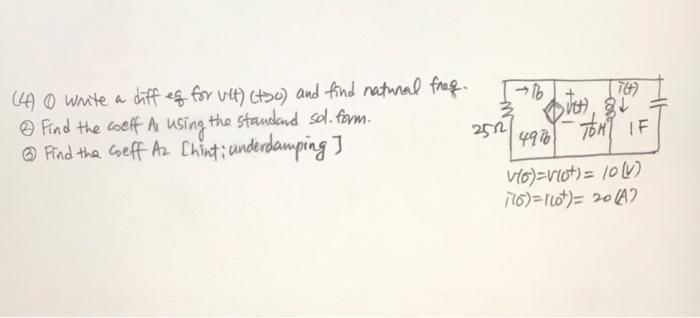 (4) ① Write a diff eq for v(t) (t>0) and find natural freq.
② Find the coeff A1 using the standard sol. form.
③ Find the coeff A2 [hint; underdamping]
→ ib
i(t)
+
v(t)
↓
25Ω
49ib
−
1/10 H
1F
v(0⁻)=v(0⁺)= 10(V)
i(0⁻)=i(0⁺)= 20(A)